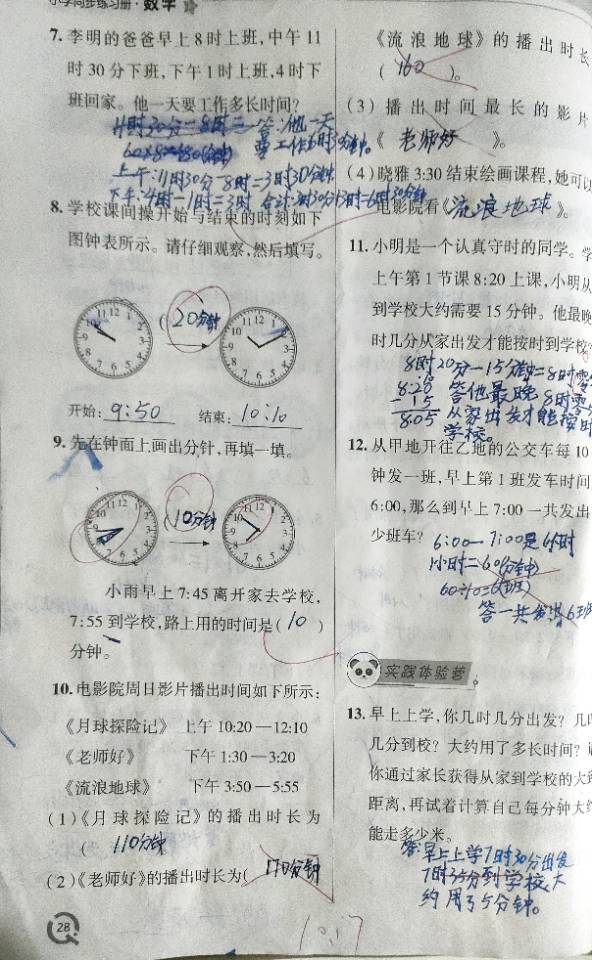 小学同步练习册·数学
7. 李明的爸爸早上8时上班,中午11
时30分下班,下午1时上班,4时下
班回家。他一天要工作多长时间?
答:他一天
要工作6时30分钟。
上午:11时30分-8时=3时30分钟
下午:4时-1时=3时 合计:3时30分+3时=6时30分钟
8. 学校课间操开始与结束的时刻如下
图钟表所示。请仔细观察,然后填写。
(20分钟
开始: 9:50 结束: 10:10
9. 先在钟面上画出分针,再填一填。
(10分钟
小雨早上7:45离开家去学校,
7:55到学校,路上用的时间是(10)
分钟。
10. 电影院周日影片播出时间如下所示:
《月球探险记》 上午10:20—12:10
《老师好》 下午1:30—3:20
《流浪地球》 下午3:50—5:55
(1)《月球探险记》的播出时长为
( 110分钟
(2)《老师好》的播出时长为(170分钟
28
《流浪地球》的播出时长
( 160 )。
(3)播出时间最长的影片
《 老师好 》。
(4)晓雅3:30结束绘画课程,她可以
电影院看《流浪地球》。
11. 小明是一个认真守时的同学。学
上午第1节课8:20上课,小明从
到学校大约需要15分钟。他最晚
时几分从家出发才能按时到学校?
8时20分-15分钟=8时零
8:20
-15
8:05
答他最晚8时零5
从家出发才能按时
学校。
12. 从甲地开往乙地的公交车每10
钟发一班,早上第1班发车时间
6:00,那么到早上7:00一共发出
少班车?
6:00—7:00是1小时
1小时=60(分钟)
60÷10=6(班)
答一共发出6班
实践体验营
13. 早上上学,你几时几分出发?几时
几分到校?大约用了多长时间?
你通过家长获得从家到学校的大约
距离,再试着计算自己每分钟大约
能走多少米。
答:早上上学7时30分出发
7时35分到学校大
约用了5分钟。
10.17